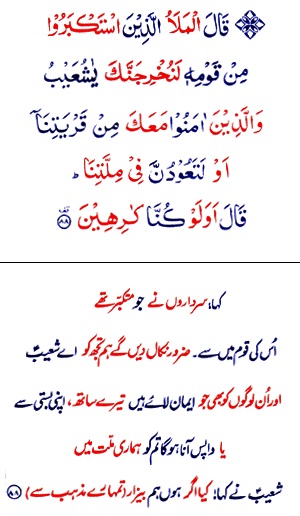 قَالَ الْمَلَاُ الَّذِيْنَ اسْتَكْبَرُوْا
مِنْ قَوْمِهٖ لَنُخْرِجَنَّكَ يٰشُعَيْبُ
وَالَّذِيْنَ اٰمَنُوْا مَعَكَ مِنْ قَرْيَتِنَاۤ
اَوْ لَتَعُوْدُنَّ فِيْ مِلَّتِنَا ؕ
قَالَ اَوَلَوْ كُنَّا كٰرِهِيْنَ ۟ۚ ﴿۸۸﴾
کہا: سرداروں نے جو متکبّر تھے
اُس کی قوم میں سے۔ ضرور نکال دیں گے ہم تجھ کو اے شعیبؑ
اور اُن لوگوں کو بھی جو ایمان لائے ہیں تیرے ساتھ، اپنی بستی سے
یا واپس آنا ہوگا تم کو ہماری ملّت میں
شعیبؑ نے کہا: کیا اگر ہوں ہم بیزار (تمہارے مذہب سے) ﴿۸۸﴾